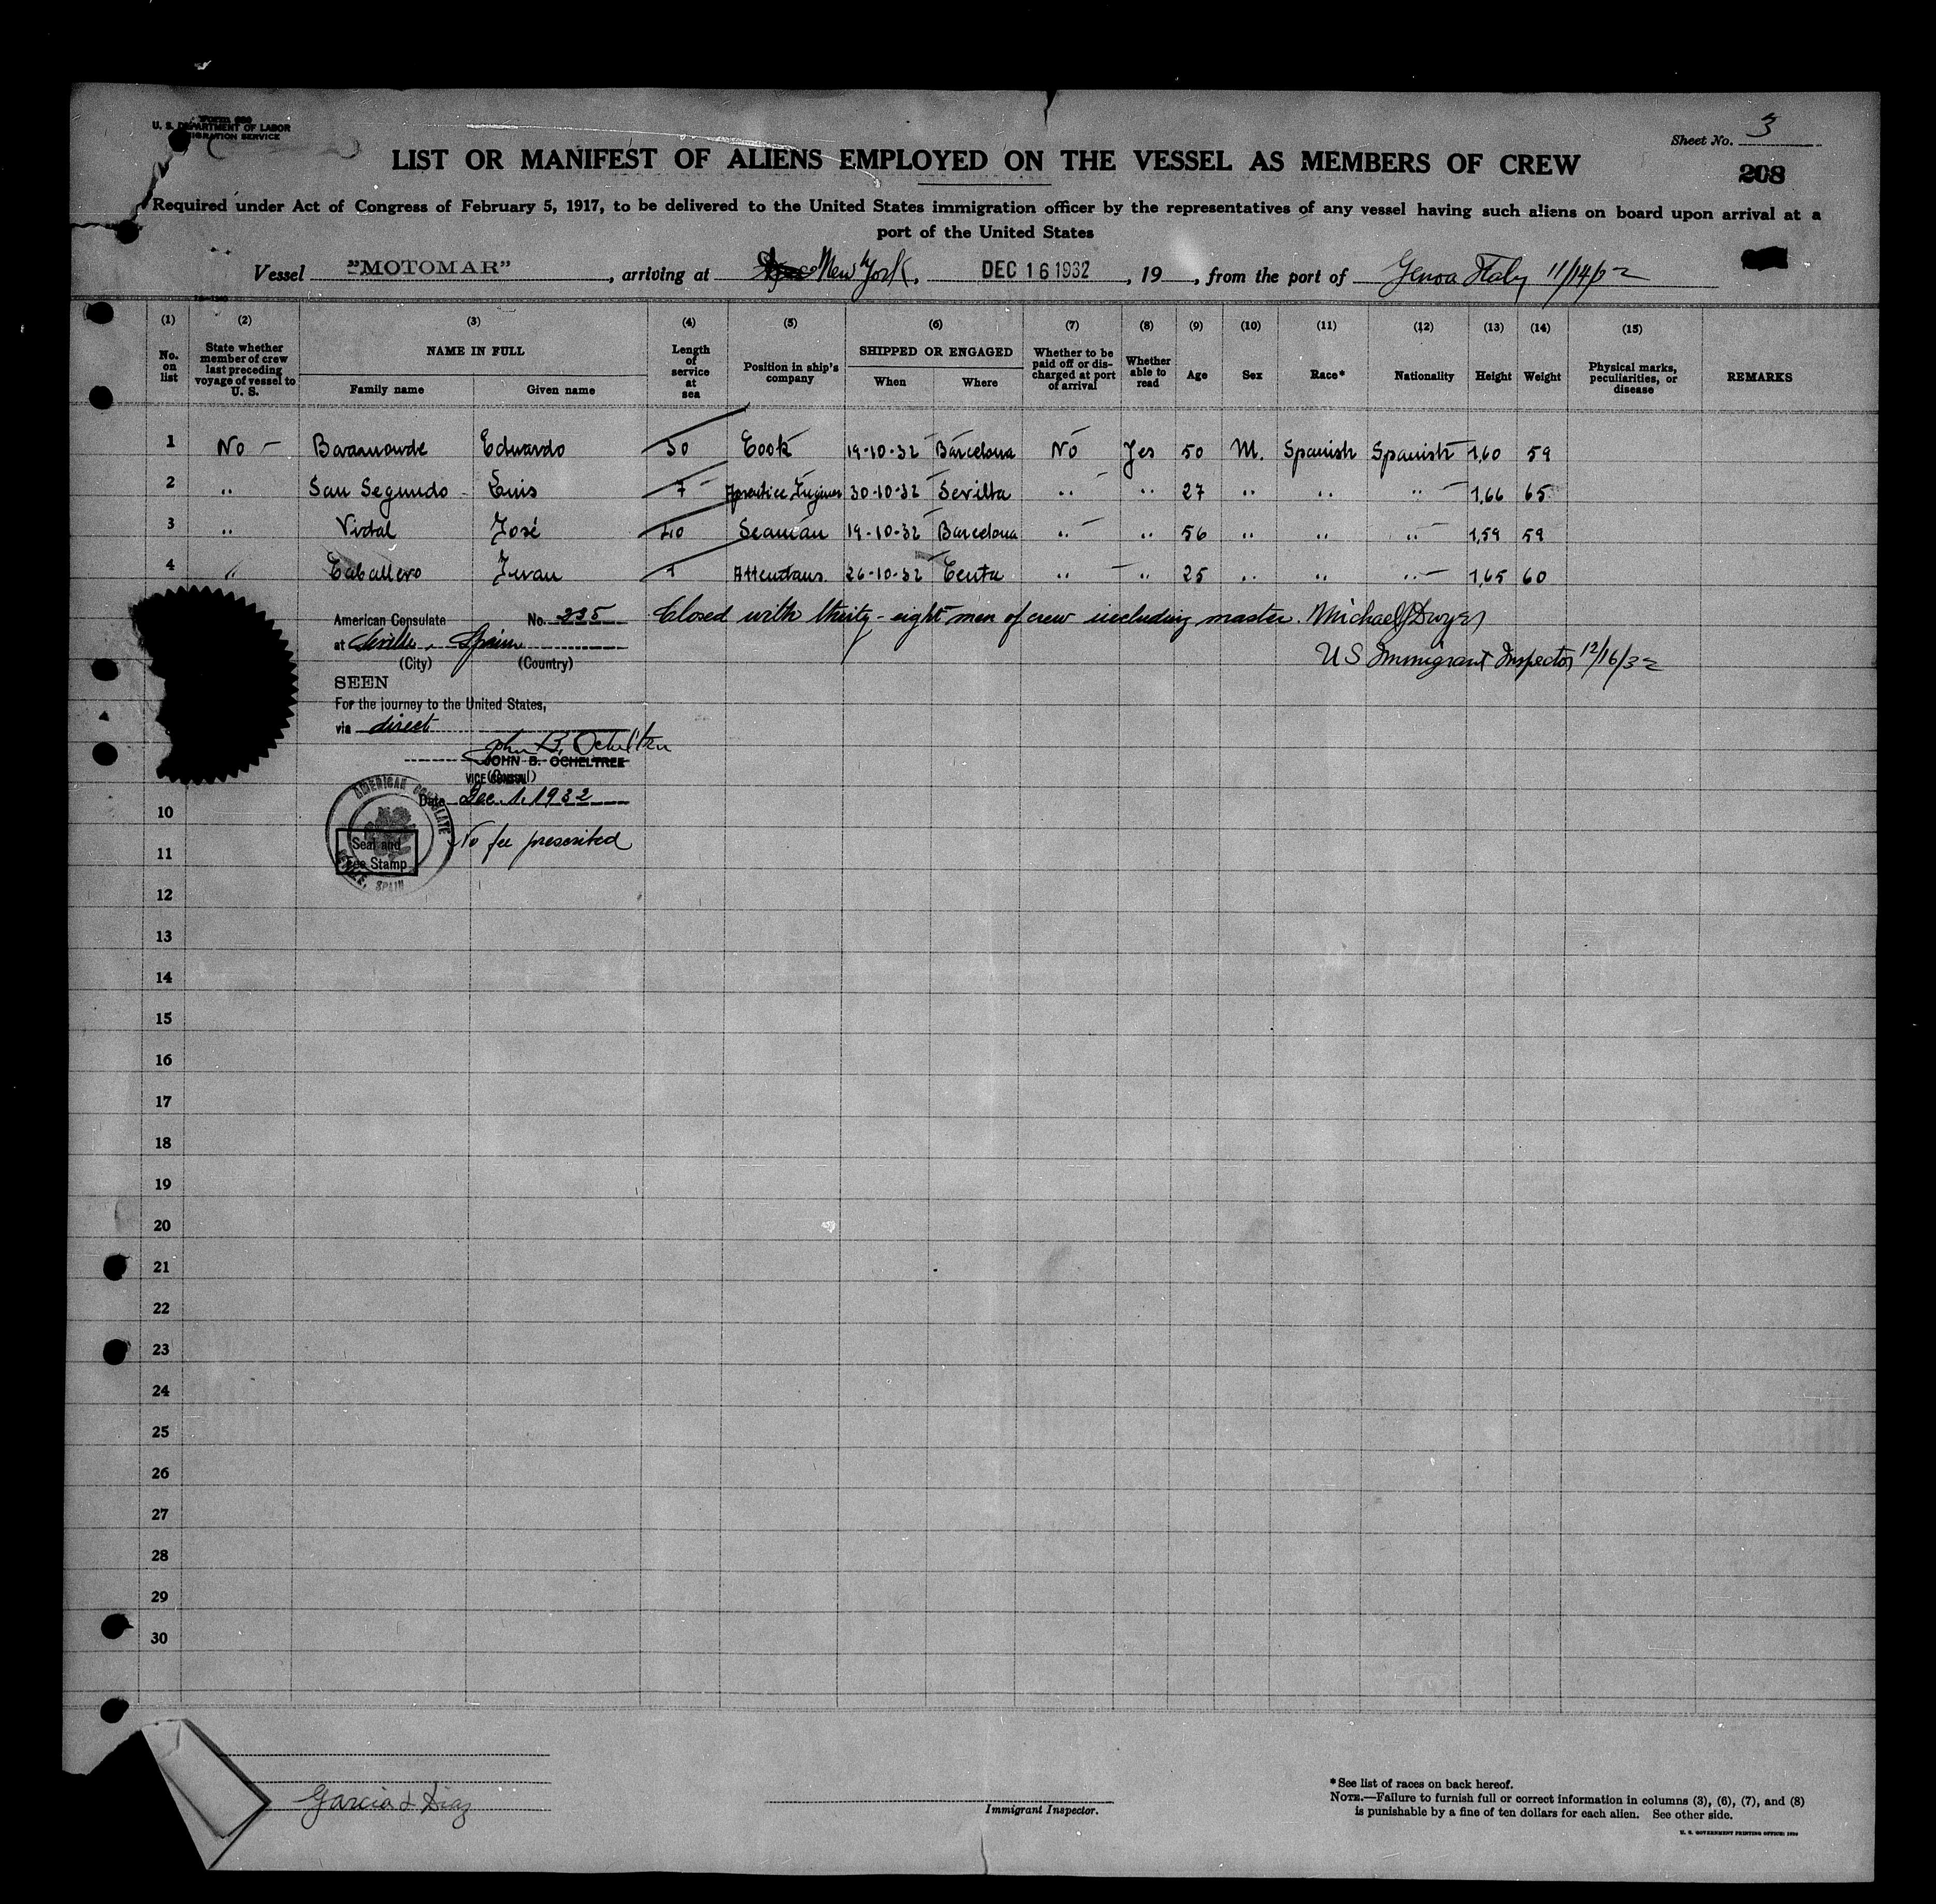 U. S. DEPARTMENT OF LABOR
IMMIGRATION SERVICE
Sheet No. 3
LIST OR MANIFEST OF ALIENS EMPLOYED ON THE VESSEL AS MEMBERS OF CREW
208
Required under Act of Congress of February 5, 1917, to be delivered to the United States immigration officer by the representatives of any vessel having such aliens on board upon arrival at a
port of the United States
Vessel "MOTOMAR", arriving at New York, DEC 16 1932, 19, from the port of Genoa Italy 11/14/32
(1) (2) (3) (4) (5) (6) (7) (8) (9) (10) (11) (12) (13) (14) (15)
No. on list
State whether member of crew last preceding voyage of vessel to U. S.
NAME IN FULL
Family name Given name
Length of service at sea
Position in ship's company
SHIPPED OR ENGAGED
When Where
Whether to be paid off or discharged at port of arrival
Whether able to read
Age Sex Race* Nationality Height Weight
Physical marks, peculiarities, or disease
REMARKS
1 No – Eduardo 30 Cook 19-10-32 Barcelona No Yes 50 M. Spanish Spanish 1,60 59
2 " San Segundo Luis 7 30-10-32 Sevilla " " 27 " " " 1,66 65
3 " Vidal José 40 Seaman 19-10-32 Barcelona " " 56 " " " 1,59 59
4 " Caballero Juan 26-10-32 Ceuta " " 25 " " " 1,65 60
Closed with thirty-eight men of crew including master. Michael J Dwyer
US Immigrant Inspector 12/16/32
American Consulate No. 235
at Seville, Spain
(City) (Country)
SEEN
For the journey to the United States,
via direct
John B. Ocheltree
JOHN B. OCHELTREE
VICE CONSUL
Date Dec. 1. 1932
AMERICAN CONSULATE
SEVILLE, SPAIN
Seal and
Fee Stamp
No fee prescribed
10
11
12
13
14
15
16
17
18
19
20
21
22
23
24
25
26
27
28
29
30
Garcia & Diaz
Immigrant Inspector.
*See list of races on back hereof.
NOTE.—Failure to furnish full or correct information in columns (3), (6), (7), and (8)
is punishable by a fine of ten dollars for each alien. See other side.